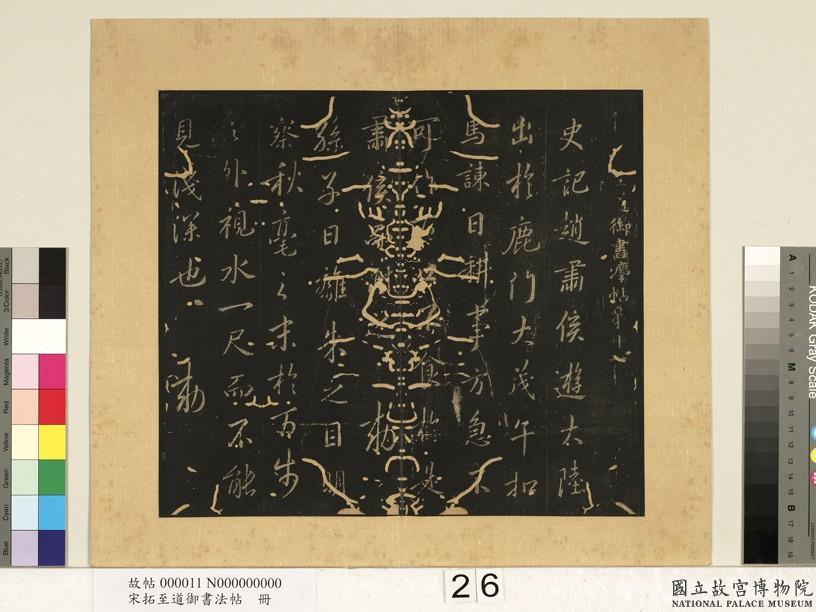 御書法帖第十
史記趙肅侯遊大陸
出於鹿門大茂午扣
馬諫曰耕事方急不
可
肅侯 勑
孫子曰離朱之目明
察秋毫之末於百步
之外視水一尺而不能
見淺深也 勑
故帖 000011 N000000000
宋拓至道御書法帖 冊
26
國立故宮博物院
NATIONAL PALACE MUSEUM
KODAK Gray Scale
A 1 2 3 4 5 6 M 8 9 10 11 12 13 14 15 B 17 18 19
Black
3/Color
White
Magenta
Red
Yellow
Green
Cyan
Blue